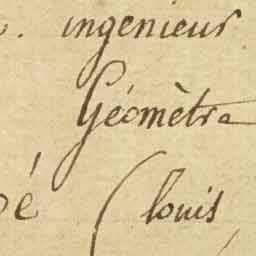 . ingenieur
Géomètre
é (louis